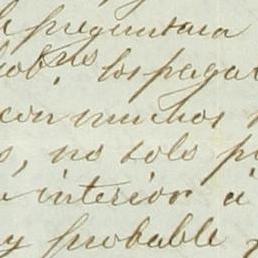 preguntara
los pagar
con muchos
no solo
interior á
y probable